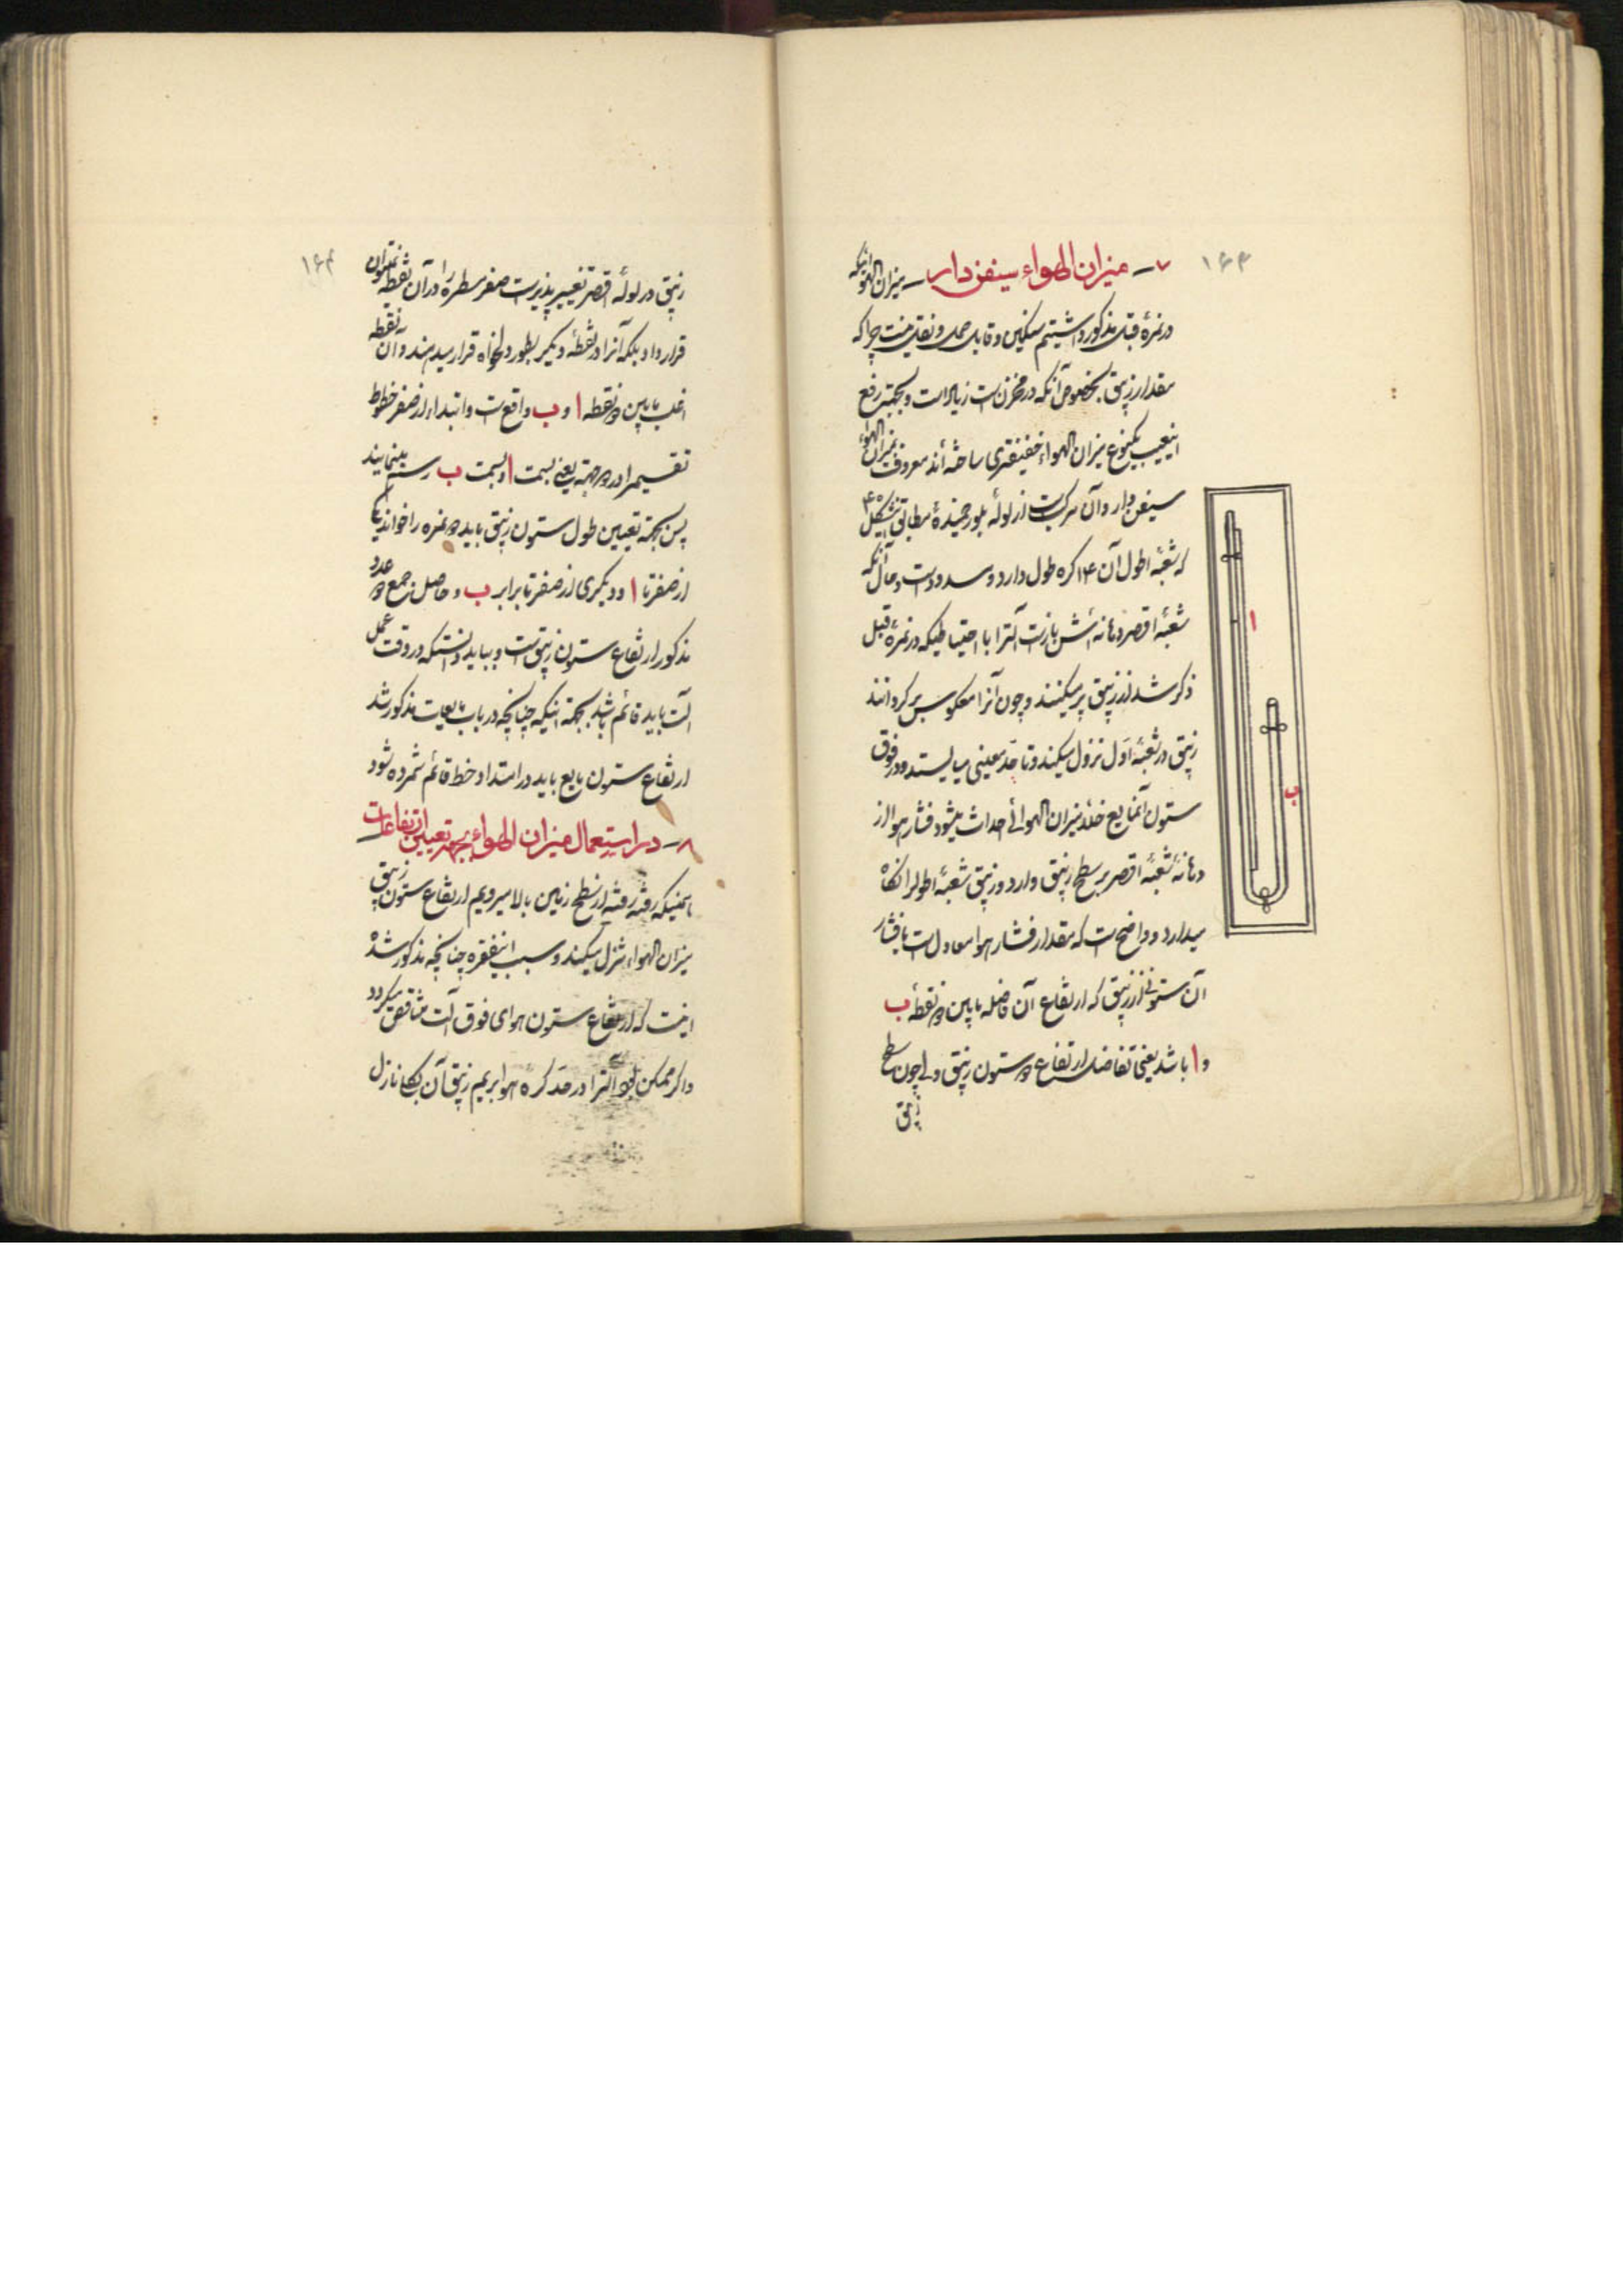 ۱۶۳
۷ـ میزان الهواء سیفن دار ـ میزان الهوائیکه
در نمرهٔ قبل مذکور داشتیم سنگین و قابل حمل و نقل نیست چرا که
مقدار زیبق بخصوص آنکه در مخزن است زیاد است و بجهته رفع
اینعیب یکنوع میزان الهواء خفیفتری ساخته‌اند معروف بمیزان الهواء
سیفن دار و آن مرکب است از لولهٔ بلور خمیدهٔ مطابق شکل ۴
که شعبهٔ اطول آن ۱۴ گره طول دارد و مسدود است و حال آنکه
شعبهٔ اقصر دهانه‌اش باز است آلت را با احتیاطیکه در نمرهٔ قبل
ذکر شد از زیبق پر میکنند و چون آنرا معکوس برگردانند
زیبق در شعبهٔ اول نزول میکند و تا حد معینی میایستد و در فوق
ستون آنمایع خلاء میزان الهوائی احداث میشود فشار هوا از
دهانهٔ شعبهٔ اقصر بر سطح زیبق وارد و زیبق شعبهٔ اطولرا نگاه
میدارد و واضح است که مقدار فشار هوا معادل است با فشار
آن ستونی از زیبق که ارتفاع آن فاصله مابین دو نقطهٔ ب
و ا باشد یعنی تفاضل ارتفاع دو ستون زیبق ولی چون سطح
زیبق
ا
ب
۱۶۴
زیبق در لولهٔ اقصر تغییرپذیر است صفر مسطره را در آن نقطه نمیتوان
قرار داد بلکه آنرا در نقطهٔ دیگر بطور دلخواه قرار میدهند و آن نقطه
اغلب مابین دو نقطه ا و ب واقع است و ابتداء از صفر خطوط
تقسیم را در دو جهته یعنی بسمت ا و بسمت ب رسم مینمایند
پس بجهته تعیین طول ستون زیبق باید دو نمره را خواند یکی
از صفر تا ا و دیگری از صفر تا برابر ب و حاصل جمع دو عدد
مذکور ارتفاع ستون زیبق است و بباید دانست که در وقت عمل
آلت باید قائم باشد بجهته اینکه چنانچه در باب مایعات مذکور شد
ارتفاع ستون مایع باید در امتداد خط قائم شمرده شود
۸ـ در استعمال میزان الهواء بجهته تعیین ارتفاعات
همینکه رفته رفته از سطح زمین بالا میرویم ارتفاع ستون زیبق
میزان الهواء تنزل میکند و سبب اینفقره چنانچه مذکور شد
اینست که ارتفاع ستون هوای فوق آلت متناقص میگردد
و اگر ممکن بود آلت را در حد کرهٔ هوا بریم زیبق آن بکلی نازل